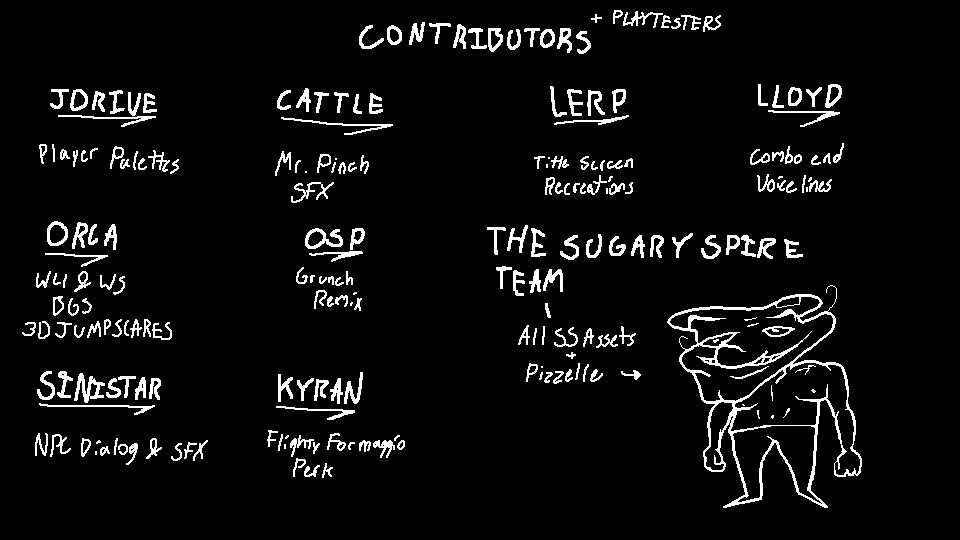 CONTRIBUTORS + PLAYTESTERS
JDRIVE
Player Palettes
CATTLE
Mr. Pinch
SFX
LERP
Title Screen
Recreations
LLOYD
Combo end
Voice lines
ORCA
W4 & W5
BGS
3D JUMPSCARES
OSP
Grunch
Remix
THE SUGARY SPIRE
TEAM
All SS Assets
+
Pizzelle →
SINISTAR
NPC Dialog & SFX
KYRAN
Flighty Formaggio
Perk